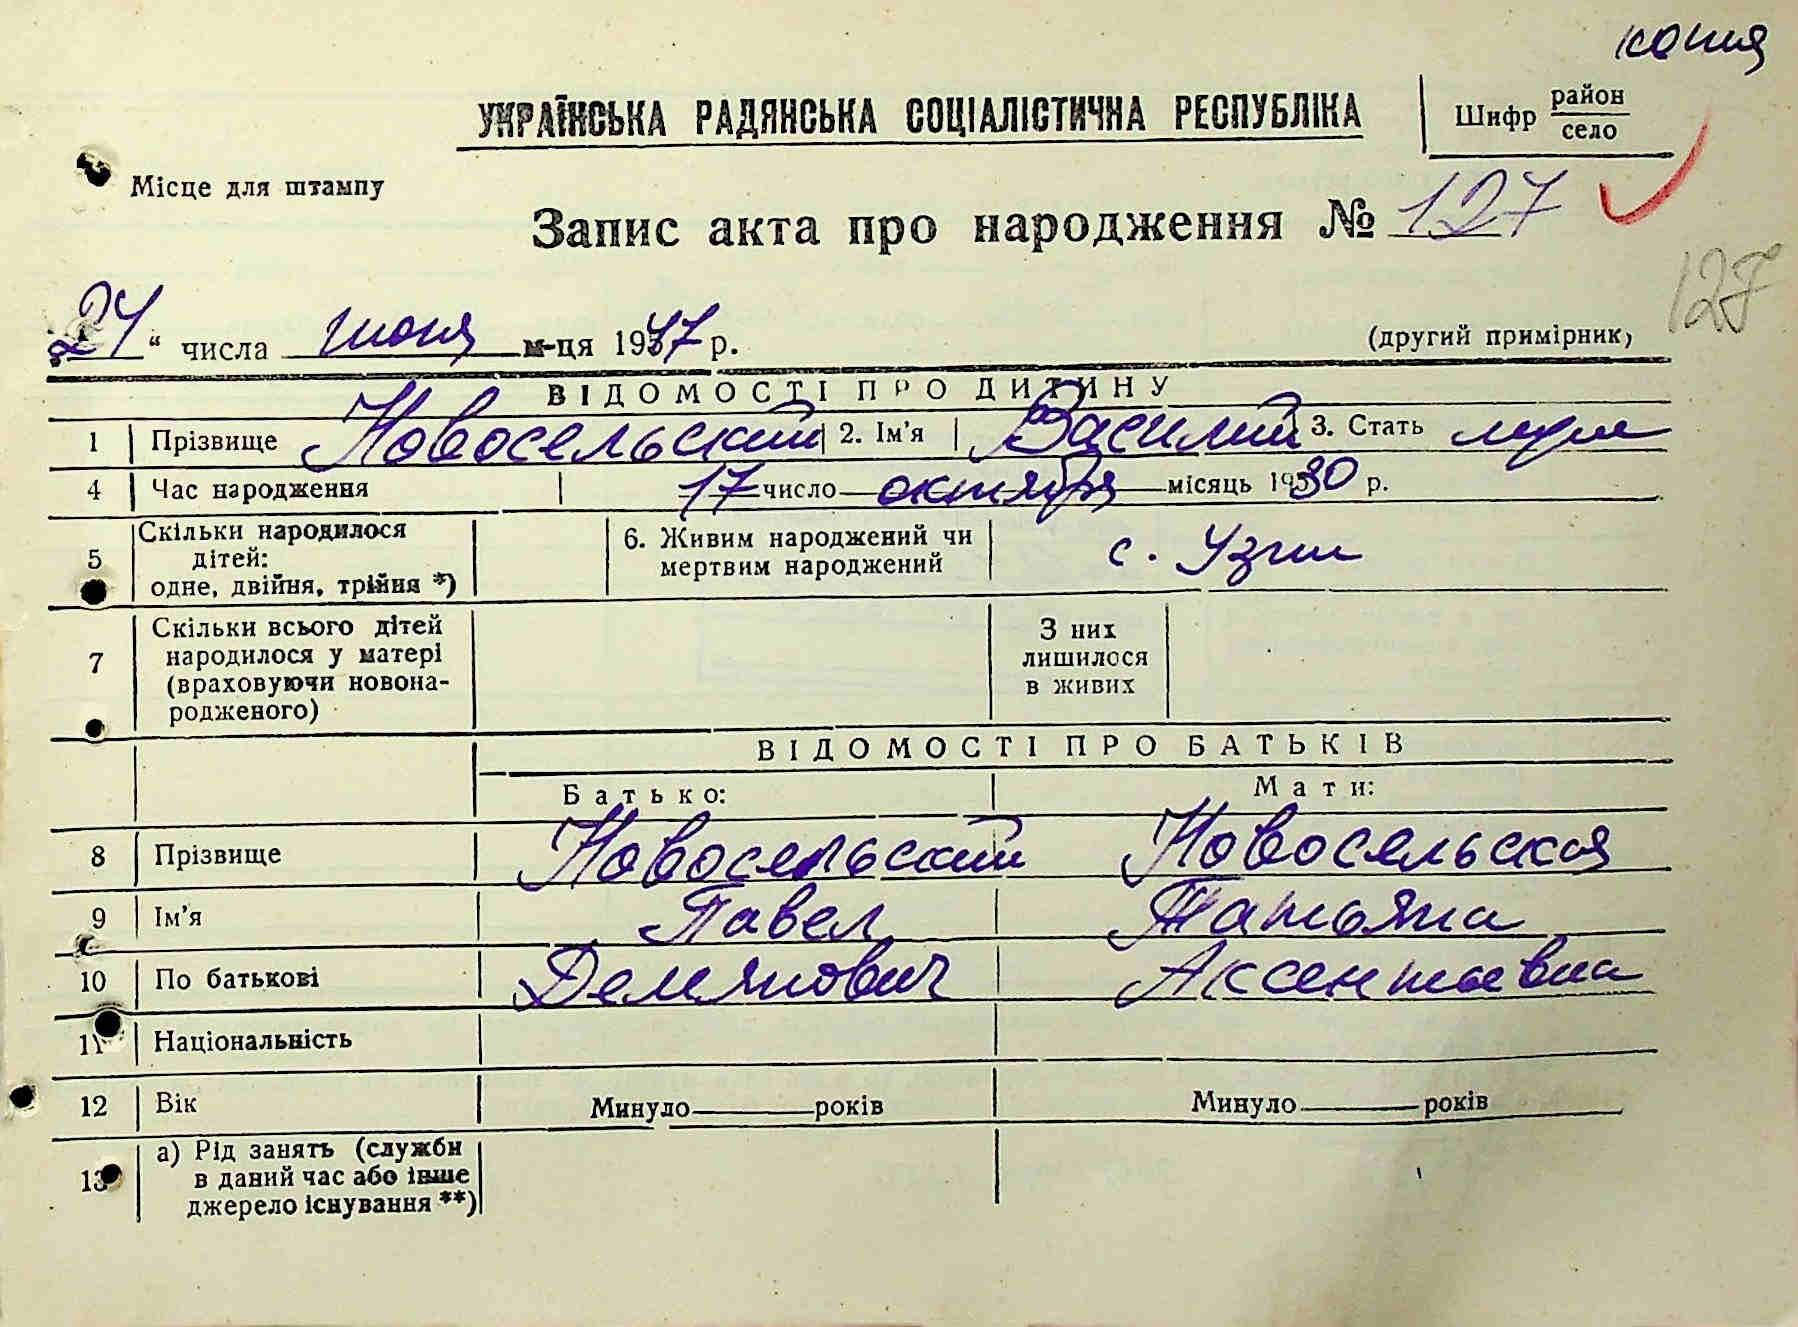 копия
УКРАЇНСЬКА РАДЯНСЬКА СОЦІАЛІСТИЧНА РЕСПУБЛІКА
Шифр район
село
Місце для штампу
Запис акта про народження № 127
127
24 " числа июня м-ця 1947 р.
(другий примірник)
ВІДОМОСТІ ПРО ДИТИНУ
1 Прізвище Новосельский 2. Ім'я Василий 3. Стать муж
4 Час народження 17 число октября місяць 1930 р.
5 Скільки народилося дітей: одне, двійня, трійня *) 6. Живим народжений чи мертвим народжений с. Узин
7 Скільки всього дітей народилося у матері (враховуючи новонародженого) З них лишилося в живих
ВІДОМОСТІ ПРО БАТЬКІВ
Батько: Мати:
8 Прізвище Новосельский Новосельская
9 Ім'я Павел Татьяна
10 По батькові Демянович Аксентьевна
11 Національність
12 Вік Минуло років Минуло років
13 а) Рід занять (служби в даний час або інше джерело існування **)